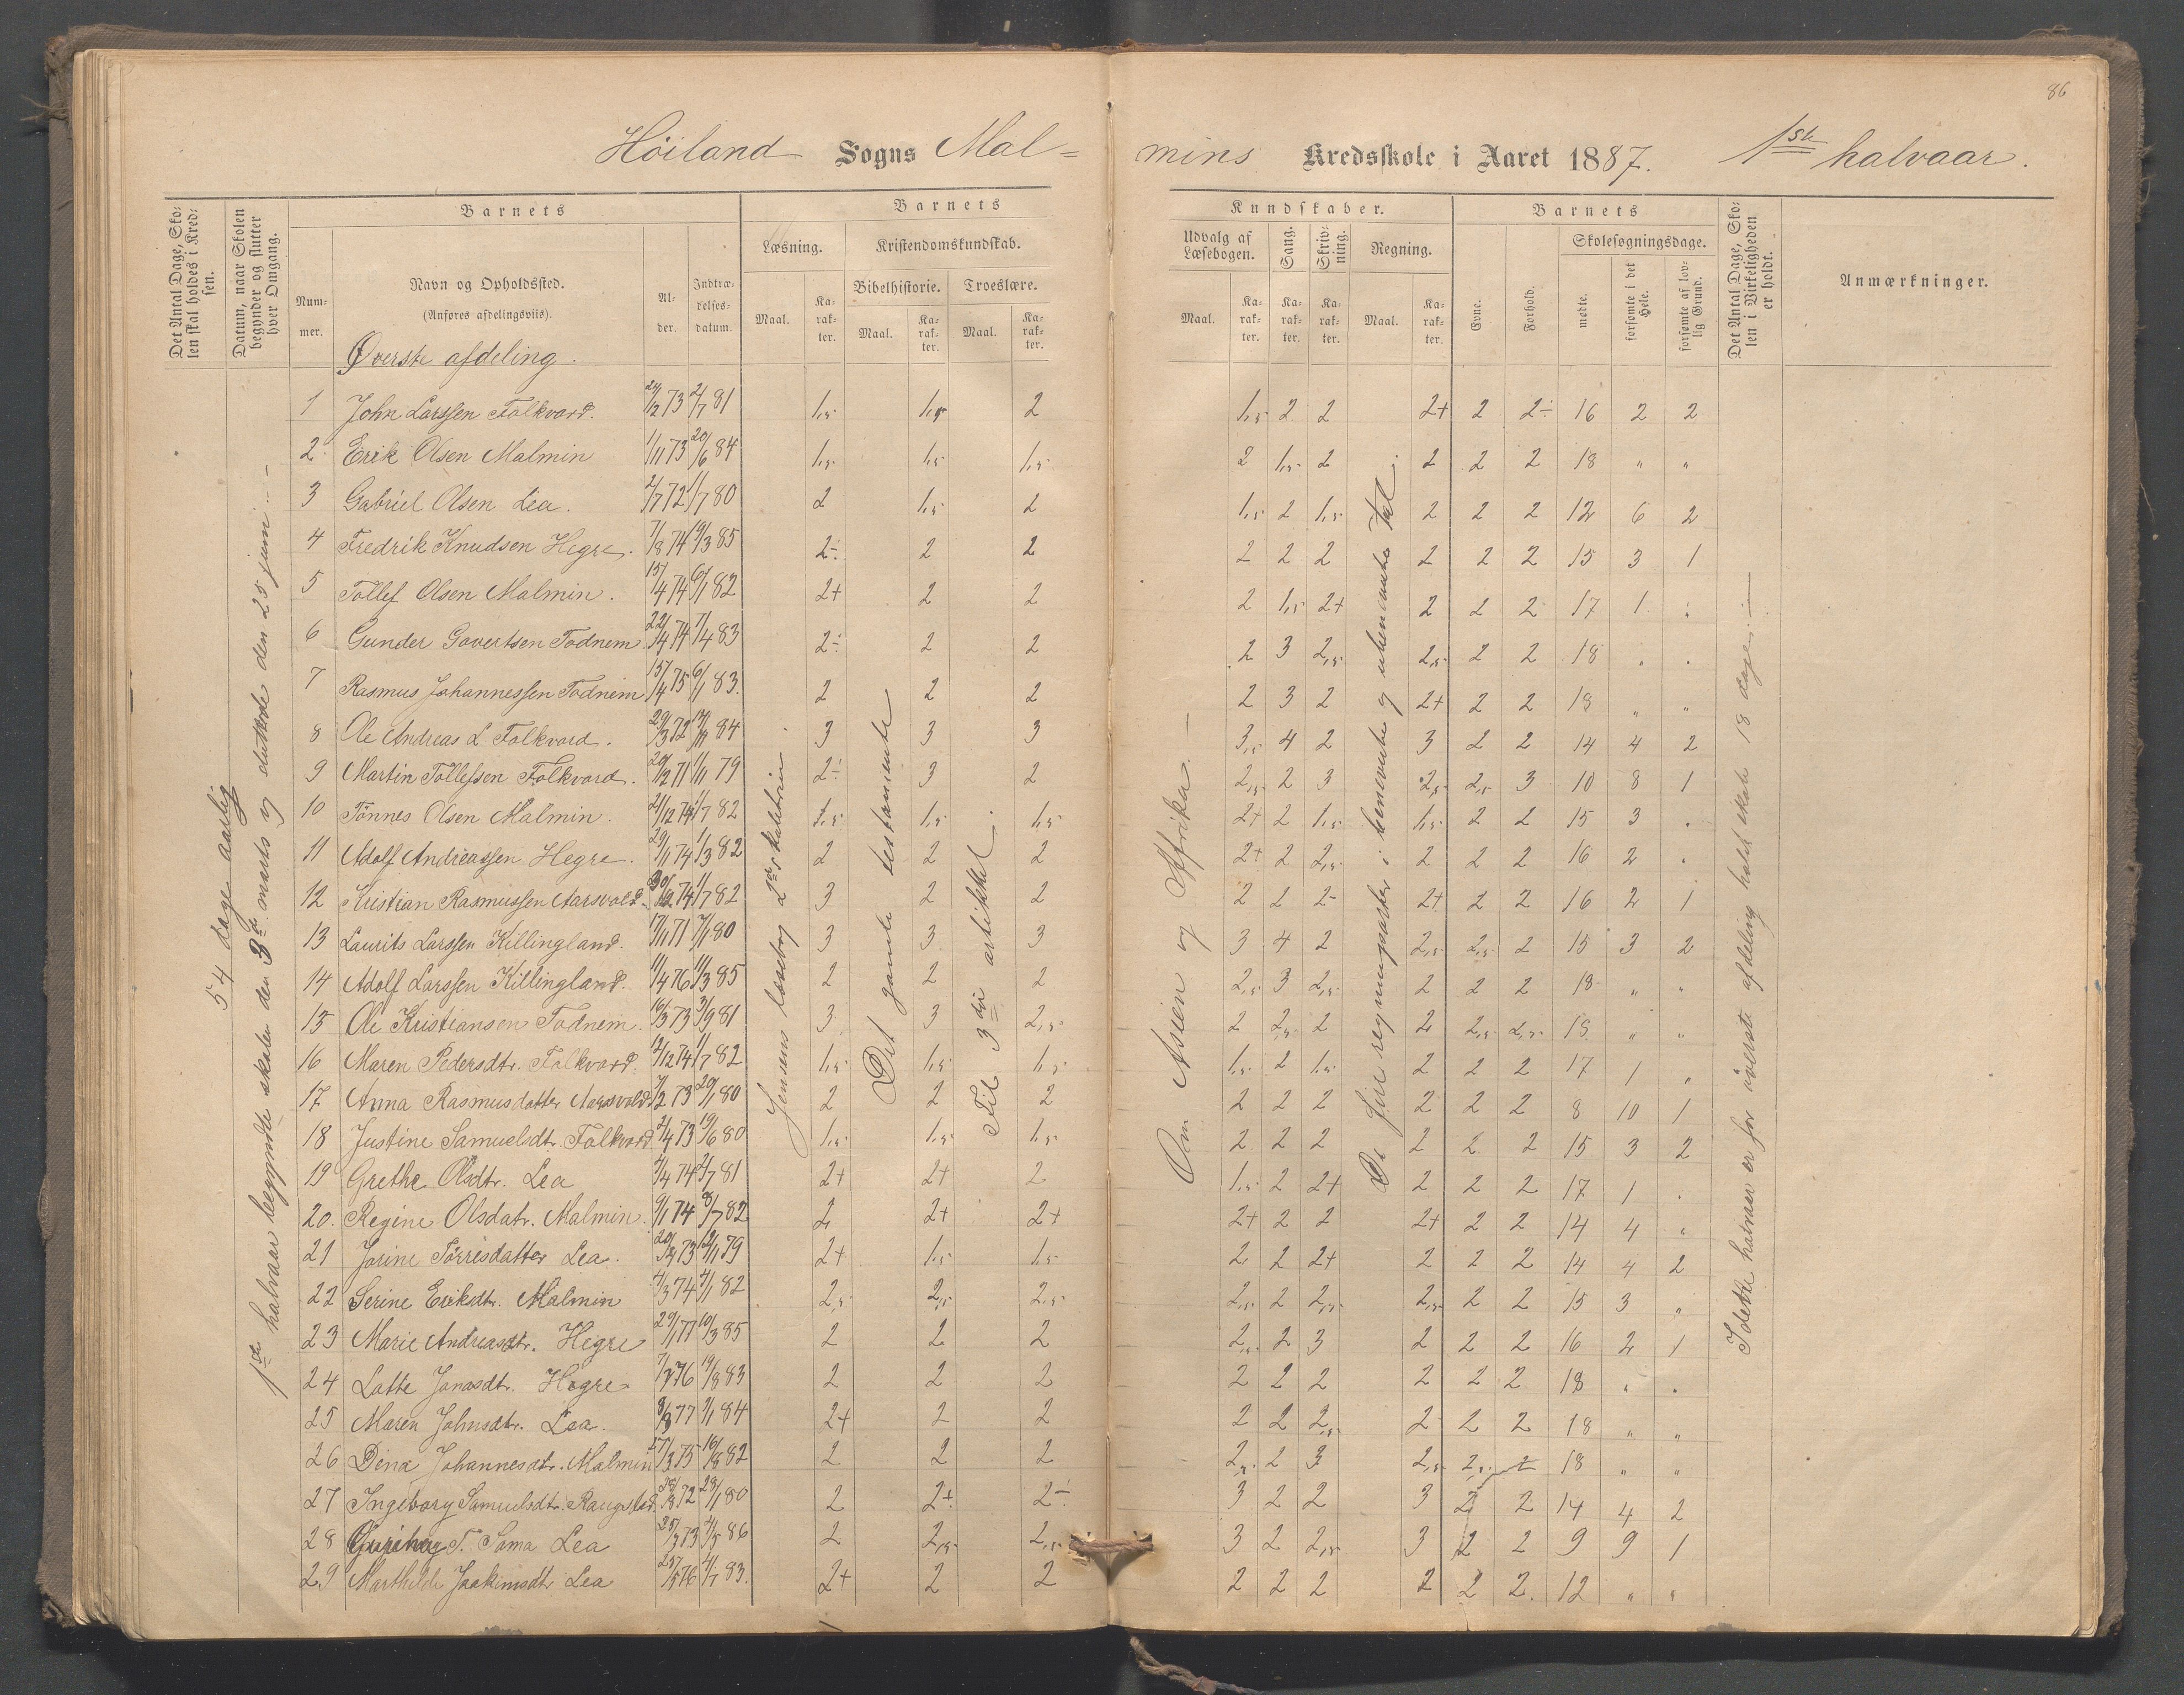 86
Höiland Sogns Mal-
mins Kredsskole i Aaret 1887. 1ste halvaar.
Det Antal Dage, Skolen skal holdes i Kredsen.
Datum, naar Skolen begynder og slutter hver Omgang.
Barnets
Nummer.
Navn og Opholdssted.
(Anføres afdelingsviis).
Alder.
Indtrædelses-datum.
Barnets
Kundskaber.
Læsning.
Kristendomskundskab.
Bibelhistorie. Troeslære.
Maal. Karakter. Maal. Karakter. Maal. Karakter.
Udvalg af Læsebogen.
Sang.
Skrivning.
Regning.
Maal. Karakter. Karakter. Karakter. Maal. Karakter.
Barnets
Evne.
Forhold.
Skolesøgningsdage.
mødte.
forsømte i det Hele.
forsømte af lovlig Grund.
Det Antal Dage, Skolen i Virkeligheden er holdt.
Anmærkninger.
Øverste afdeling.
54 dage aarlig
1ste halvaar begyndte skolen den 3die marts og sluttede den 25 juni. –
Jensens læsebog 2det skoletrin.
Det gamle testamente
Til 3die artikkel.
Om Asien og Afrika. –
De fire regningsarter i benevnte og ubenævnte tal.
I dette halvaar er for øverste afdeling holdt skole 18 dage. –
1 John Larssen Folkvord. 24/12 73 2/7 81 1,5 1,5 2 1,5 2 2 2+ 2 2÷ 16 2 2
2 Erik Olsen Malmin 1/11 73 20/6 84 1,5 1,5 1,5 2 1,5 2 2 2 2 18 " "
3 Gabriel Olsen Lea. 2/7 72 1/7 80 2 1,5 2 1,5 2 1,5 2 2 2 12 6 2
4 Fredrik Knudsen Hegre. 7/8 74 9/3 85 2÷ 2 2 2 2 2 2 2 2 15 3 1
5 Tollef Olsen Malmin. 15/4 74 6/1 82 2+ 2 2 2 1,5 2+ 2 2 2 17 1 "
6 Gunder Govertsen Todnem 22/4 74 7/4 83 2÷ 2 2 2 3 2,5 2,5 2 2 18 " "
7 Rasmus Johannessen Todnem 15/4 75 6/1 83. 2 2 2 2 3 2 2+ 2 2 18 " "
8 Ole Andreas L. Folkvord. 29/3 72 84 3 3 3 3,5 4 2 3 2 2 14 4 2
9 Martin Tollefsen Folkvord. 20/12 71 1/11 79 2÷ 3 2 2,5 2 3 2,5 2,5 3 10 8 1
10 Tönnes Olsen Malmin. 21/12 74 1/7 82 1,5 1,5 1,5 2+ 2 1,5 1,5 2 2 15 3 "
11 Adolf Andreassen Hegre. 29/11 74 1/3 82 2 2 2 2+ 2 2,5 2 2 2 16 2 "
12 Kristian Rasmussen Aarsvold 74 1/7 82 3 2 2 2 2 2- 2+ 2 2 16 2 1
13 Laurits Larssen Killingland. 71 7/1 80 3 3 3 3 4 2 2,5 2,5 2 15 3 2
14 Adolf Larssen Killingland. 11/4 76 11/3 85 2 2 2 2,5 3 2,5 2 2 2 18 " "
15 Ole Kristiansen Todnem. 16/3 73 3/9 81 3 3 2,5 2 2,5 2 2 2,5 2,5 18 " "
16 Maren Pedersdtr. Folkvord. 12/12 74 1/7 82 1,5 1,5 1,5 1,5 2 1,5 2 2 2 17 1 "
17 Anna Rasmusdatter Aarsvold 7/2 73 20/1 80 2 2 2 2 2 2 2 2 2 8 10 1
18 Justine Samuelsdtr. Folkvord 2/4 73 19/6 80 1,5 1,5 1,5 2 2 2 2 2 2 15 3 2
19 Grethe Olsdtr. Lea 4/4 74 2/7 81 2+ 2+ 2 1,5 2 2+ 2 2 2 17 1 "
20. Regine Olsdatr. Malmin. 9/1 74 8/7 82 2 2+ 2+ 2+ 2 2 2+ 2 2 14 4 "
21 Jorine Törrisdatter Lea. 73 12/11 79 2+ 1,5 1,5 2 2 2+ 2 2 2 14 4 2
22 Serine Eriksdtr. Malmin 4/3 74 4/1 82 2,5 2,5 2,5 2,5 2 2,5 2,5 2 2 15 3 "
23 Marie Andreasdtr. Hegre 29/1 77 10/3 85 2 2 2 2,5 2 3 2 2 2 16 2 1
24 Lotte Jonasdtr. Hegre 76 19/8 83 2 2 2 2 2 2 2 2 2 18 " "
25 Maren Johnsdtr. Lea. 77 9/1 84 2+ 2 2 2 2 2,5 2 2 2 18 " "
26 Dina Johannesdtr. Malmin 27/3 75 16/8 82 2 2 2 2,5 2 3 2,5 2,5 2 18 " "
27 Ingeborg Samuelsdtr. 72 29/1 80 2 2÷ 2÷ 3 2 2 3 2 2 14 4 2
28 T. Soma Lea 25/3 73 4/5 86 2 2,5 2,5 3 2 2,5 3 2 2 9 9 1
29 Marthilde Joakimsdtr. Lea 25/5 76 4/7 83. 2+ 2 2 2 2 2 2 2 2. 12 " "